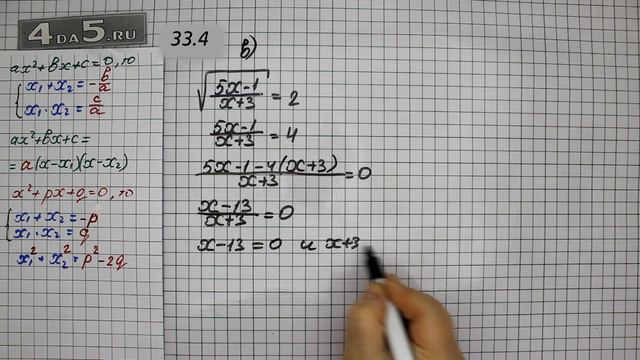 4DA5.RU
ax²+bx+c=0, то
x₁+x₂=-b/a
x₁·x₂=c/a
ax²+bx+c=
=a(x-x₁)(x-x₂)
x²+px+q=0, то
x₁+x₂=-p
x₁·x₂=q
x₁²+x₂²=p²-2q
33.4
в)
√((5x-1)/(x+3))=2
(5x-1)/(x+3)=4
(5x-1-4(x+3))/(x+3)=0
(x-13)/(x+3)=0
x-13=0 и x+3